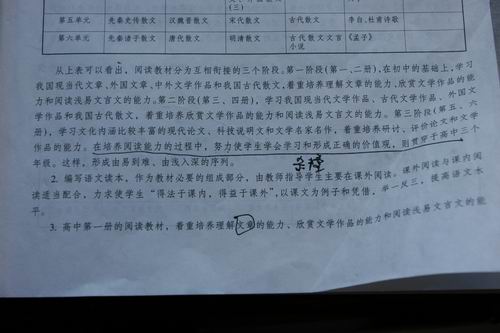 (三)
第五单元 先秦史传散文 汉魏晋散文 宋代散文 古代散文 李白、杜甫诗歌
第六单元 先秦诸子散文 唐代散文 明清散文 古代散文文言小说 《孟子》
从上表可以看出，阅读教材分为互相衔接的三个阶段。第一阶段(第一、二册)，在初中的基础上，学习
我国现当代文章、外国文章、中外文学作品和我国古代散文，着重培养理解文章的能力、欣赏文学作品的能
力和阅读浅易文言文的能力。第二阶段(第三、四册)，学习我国现当代文学作品、古代文学作品、外国文
学作品和我国古代散文，着重培养欣赏文学作品的能力和阅读浅易文言文的能力。第三阶段(第五、六
册)，学习文化内涵比较丰富的现代论文、科技说明文和文学名家名作，着重培养研讨、评价论文和文学
作品的能力。在培养阅读能力的过程中，努力使学生学会学习和形成正确的价值观，则贯穿于高中三个
年级。这样，形成由易到难、由浅入深的序列。
2. 编写语文读本，作为教材必要的组成部分，由教师指导学生主要在课外阅读。课外阅读与课内阅
读适当配合，力求使学生“得法于课内，得益于课外”，以课文为例子和凭借，举一反三，提高语文水
平。
3. 高中第一册的阅读教材，着重培养理解文章的能力、欣赏文学作品的能力和阅读浅易文言文的能